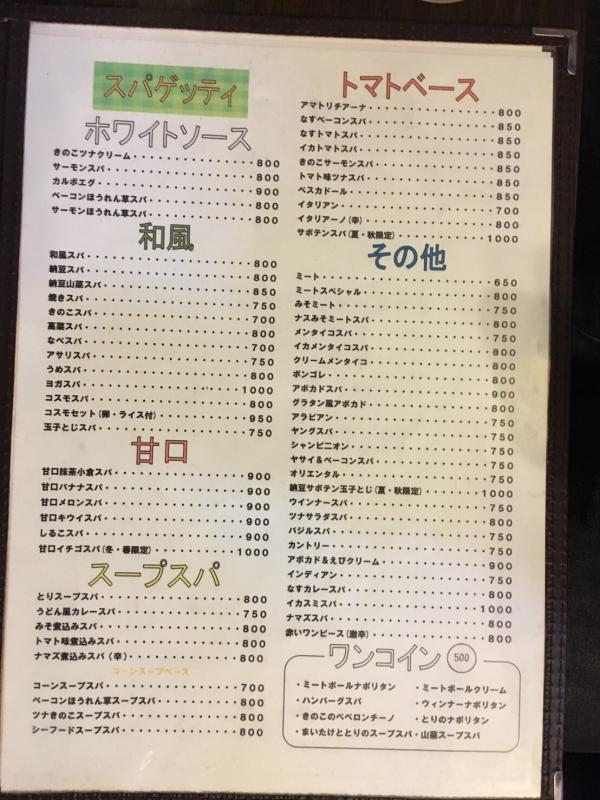 スパゲッティ
ホワイトソース
きのこツナクリーム・・・・・・・・・・・・800
サーモンスパ・・・・・・・・・・・・800
カルボエグ・・・・・・・・・・・・900
ベーコンほうれん草スパ・・・・・・・・・・・・800
サーモンほうれん草スパ・・・・・・・・・・・・800
和風
和風スパ・・・・・・・・・・・・800
納豆スパ・・・・・・・・・・・・800
納豆山菜スパ・・・・・・・・・・・・850
焼きスパ・・・・・・・・・・・・750
きのこスパ・・・・・・・・・・・・700
高菜スパ・・・・・・・・・・・・800
なべスパ・・・・・・・・・・・・700
アサリスパ・・・・・・・・・・・・750
うめスパ・・・・・・・・・・・・800
ヨガスパ・・・・・・・・・・・・1000
コスモスパ・・・・・・・・・・・・800
コスモセット(卵・ライス付)・・・・・・・・・・・・950
玉子とじスパ・・・・・・・・・・・・750
甘口
甘口抹茶小倉スパ・・・・・・・・・・・・900
甘口バナナスパ・・・・・・・・・・・・900
甘口メロンスパ・・・・・・・・・・・・900
甘口キウイスパ・・・・・・・・・・・・900
しるこスパ・・・・・・・・・・・・900
甘口イチゴスパ(冬・春限定)・・・・・・・・・・・・1000
スープスパ
とりスープスパ・・・・・・・・・・・・800
うどん風カレースパ・・・・・・・・・・・・750
みそ煮込みスパ・・・・・・・・・・・・800
トマト味煮込みスパ・・・・・・・・・・・・800
ナマズ煮込みスパ(辛)・・・・・・・・・・・・800
コーンスープベース
コーンスープスパ・・・・・・・・・・・・700
ベーコンほうれん草スープスパ・・・・・・・・・・・・800
ツナきのこスープスパ・・・・・・・・・・・・800
シーフードスープスパ・・・・・・・・・・・・800
トマトベース
アマトリチアーナ・・・・・・・・・・・・800
なすベーコンスパ・・・・・・・・・・・・850
なすトマトスパ・・・・・・・・・・・・850
イカトマトスパ・・・・・・・・・・・・850
きのこサーモンスパ・・・・・・・・・・・・850
トマト味ツナスパ・・・・・・・・・・・・850
ペスカドール・・・・・・・・・・・・850
イタリアン・・・・・・・・・・・・700
イタリアーノ(辛)・・・・・・・・・・・・800
サボテンスパ(夏・秋限定)・・・・・・・・・・・・1000
その他
ミート・・・・・・・・・・・・650
ミートスペシャル・・・・・・・・・・・・800
みそミート・・・・・・・・・・・・750
ナスみそミートスパ・・・・・・・・・・・・800
メンタイコスパ・・・・・・・・・・・・750
イカメンタイコスパ・・・・・・・・・・・・800
クリームメンタイコ・・・・・・・・・・・・800
ボンゴレ・・・・・・・・・・・・800
アボカドスパ・・・・・・・・・・・・900
グラタン風アボカド・・・・・・・・・・・・800
アラビアン・・・・・・・・・・・・750
ヤングスパ・・・・・・・・・・・・750
シャンピニオン・・・・・・・・・・・・750
ヤサイ&ベーコンスパ・・・・・・・・・・・・750
オリエンタル・・・・・・・・・・・・750
納豆サボテン玉子とじ(夏・秋限定)・・・・・・・・・・・・1000
ウインナースパ・・・・・・・・・・・・750
ツナサラダスパ・・・・・・・・・・・・800
バジルスパ・・・・・・・・・・・・750
カントリー・・・・・・・・・・・・750
アボカド&えびクリーム・・・・・・・・・・・・900
インディアン・・・・・・・・・・・・750
なすカレースパ・・・・・・・・・・・・800
イカスミスパ・・・・・・・・・・・・1000
ナマズスパ・・・・・・・・・・・・800
赤いワンピース(激辛)・・・・・・・・・・・・800
ワンコイン 500
・ミートボールナポリタン ・ミートボールクリーム
・ハンバーグスパ ・ウィンナーナポリタン
・きのこのペペロンチーノ ・とりのナポリタン
・まいたけととりのスープスパ・山菜スープスパ